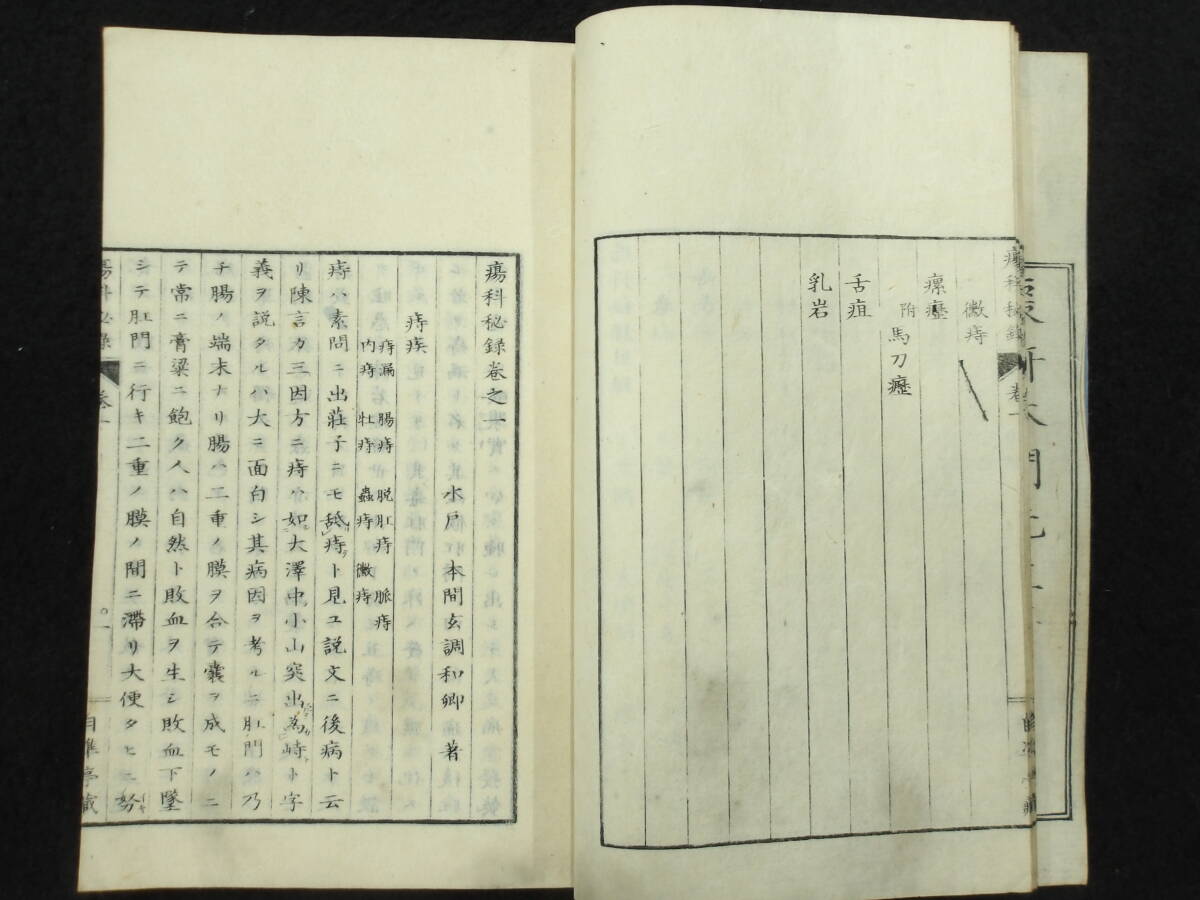 瘍科秘録 卷一
黴痔
瘰癧
附 馬刀癧
舌疽
乳岩
瘍科秘録卷之一
水戸 本間玄調和卿著
痔疾
痔漏 腸痔 脱肛痔 脈痔
内痔 牡痔 蟲痔 黴痔
痔ハ素問ニ出莊子ニモ舐痔ト見ユ説文ニ後病ト云
リ陳言カ三因方ニ痔ハ如大澤中小山突出爲峙ト字
義ヲ説タルハ大ニ面白シ其病因ヲ考ルニ肛門ハ乃
チ腸ノ端末ナリ腸ハ二重ノ膜ヲ合テ嚢ヲ成モノニ
テ常ニ膏粱ニ飽ク人ハ自然ト敗血ヲ生シ敗血下墜
シテ肛門ニ行キ二重ノ膜ノ間ニ滯リ大便タヒニ努
瘍科秘録 卷一
自準亭藏